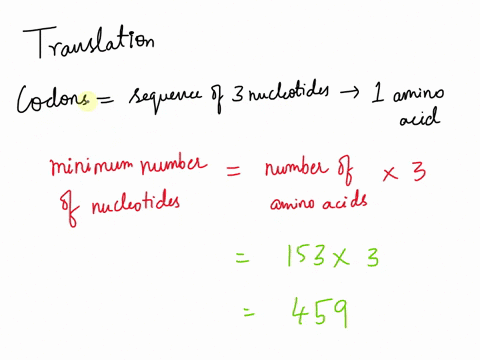 Translation
Codons = sequence of 3 nucleotides → 1 amino
acid
minimum number = number of × 3
of nucleotides amino acids
= 153 × 3
= 459